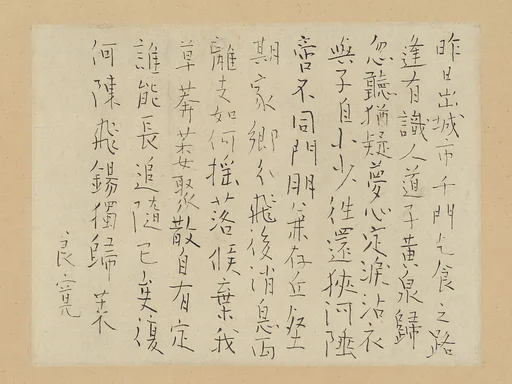 昨日出城市千門乞食之路
逢有識人道子黃泉歸
忽聽猶疑夢心定淚沾衣
與子自小少往還狹河陲
啻不同門朋兼存丘壑
期家鄉分飛後消息兩
離支如何搖落候棄我
草莽萎聚散自有定
誰能長追隨已矣復
何陳飛錫獨歸來
良寬